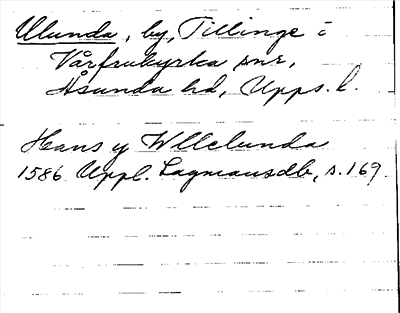 Ulunda, by, Tillinge i
Vårfrukyrka snr,
Åsunda hd, Upps. l.
Hans y Wllelunda
1586 Uppl. Lagmansdb, s. 169